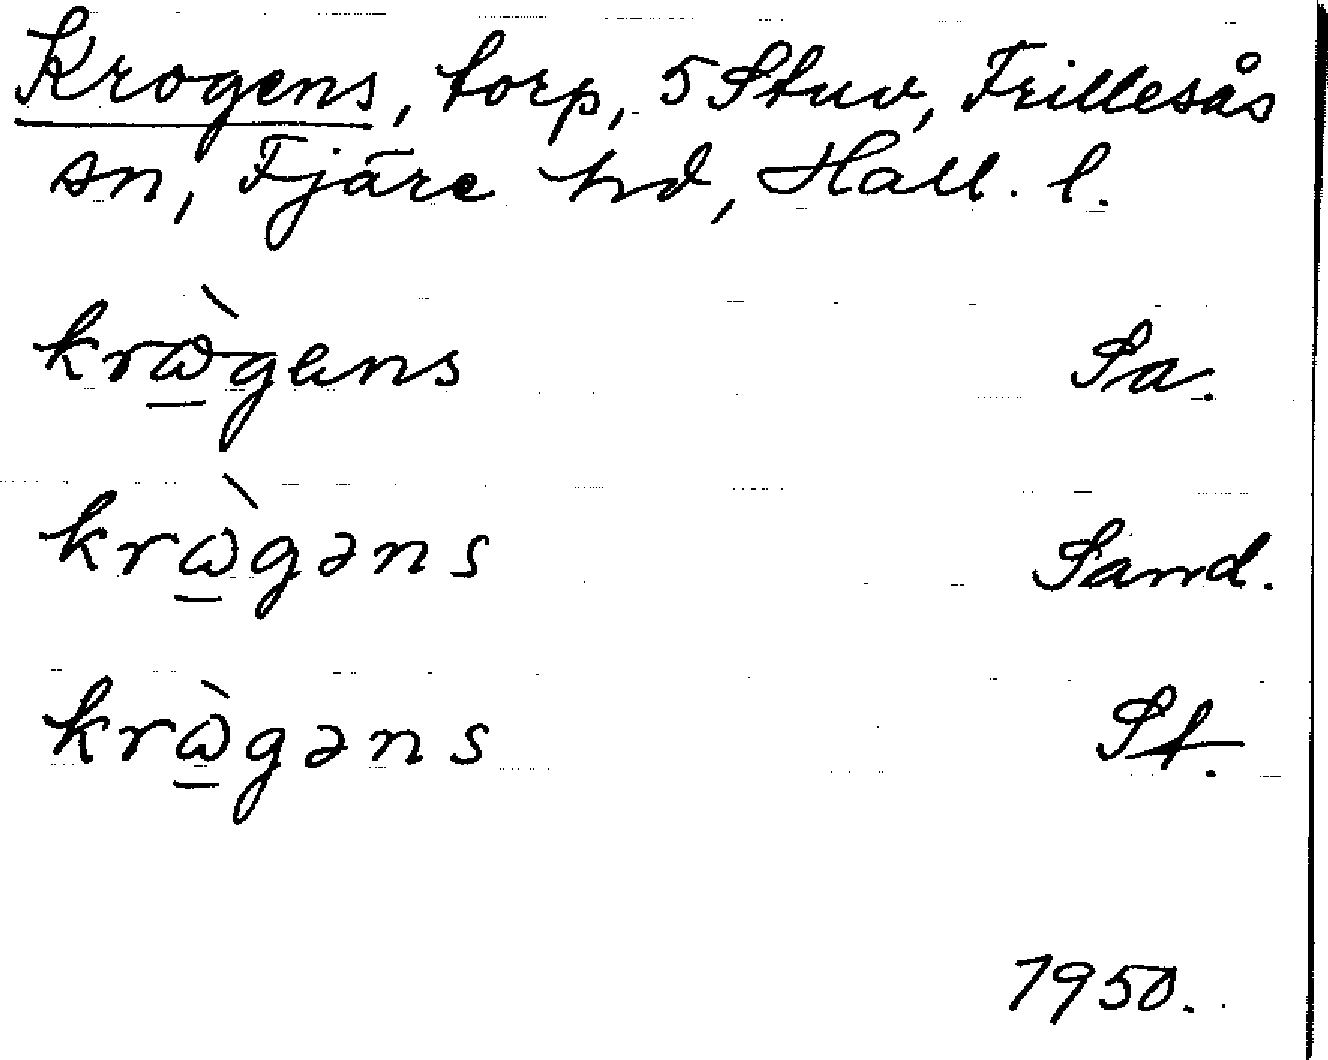 Krogens, torp, 5 Stuv, Frillesås
sn, Fjäre hd, Hall. l.
krὼ̱gens Sa.
krὼ̱gəns Sand.
krὼ̱gəns St.
1950.